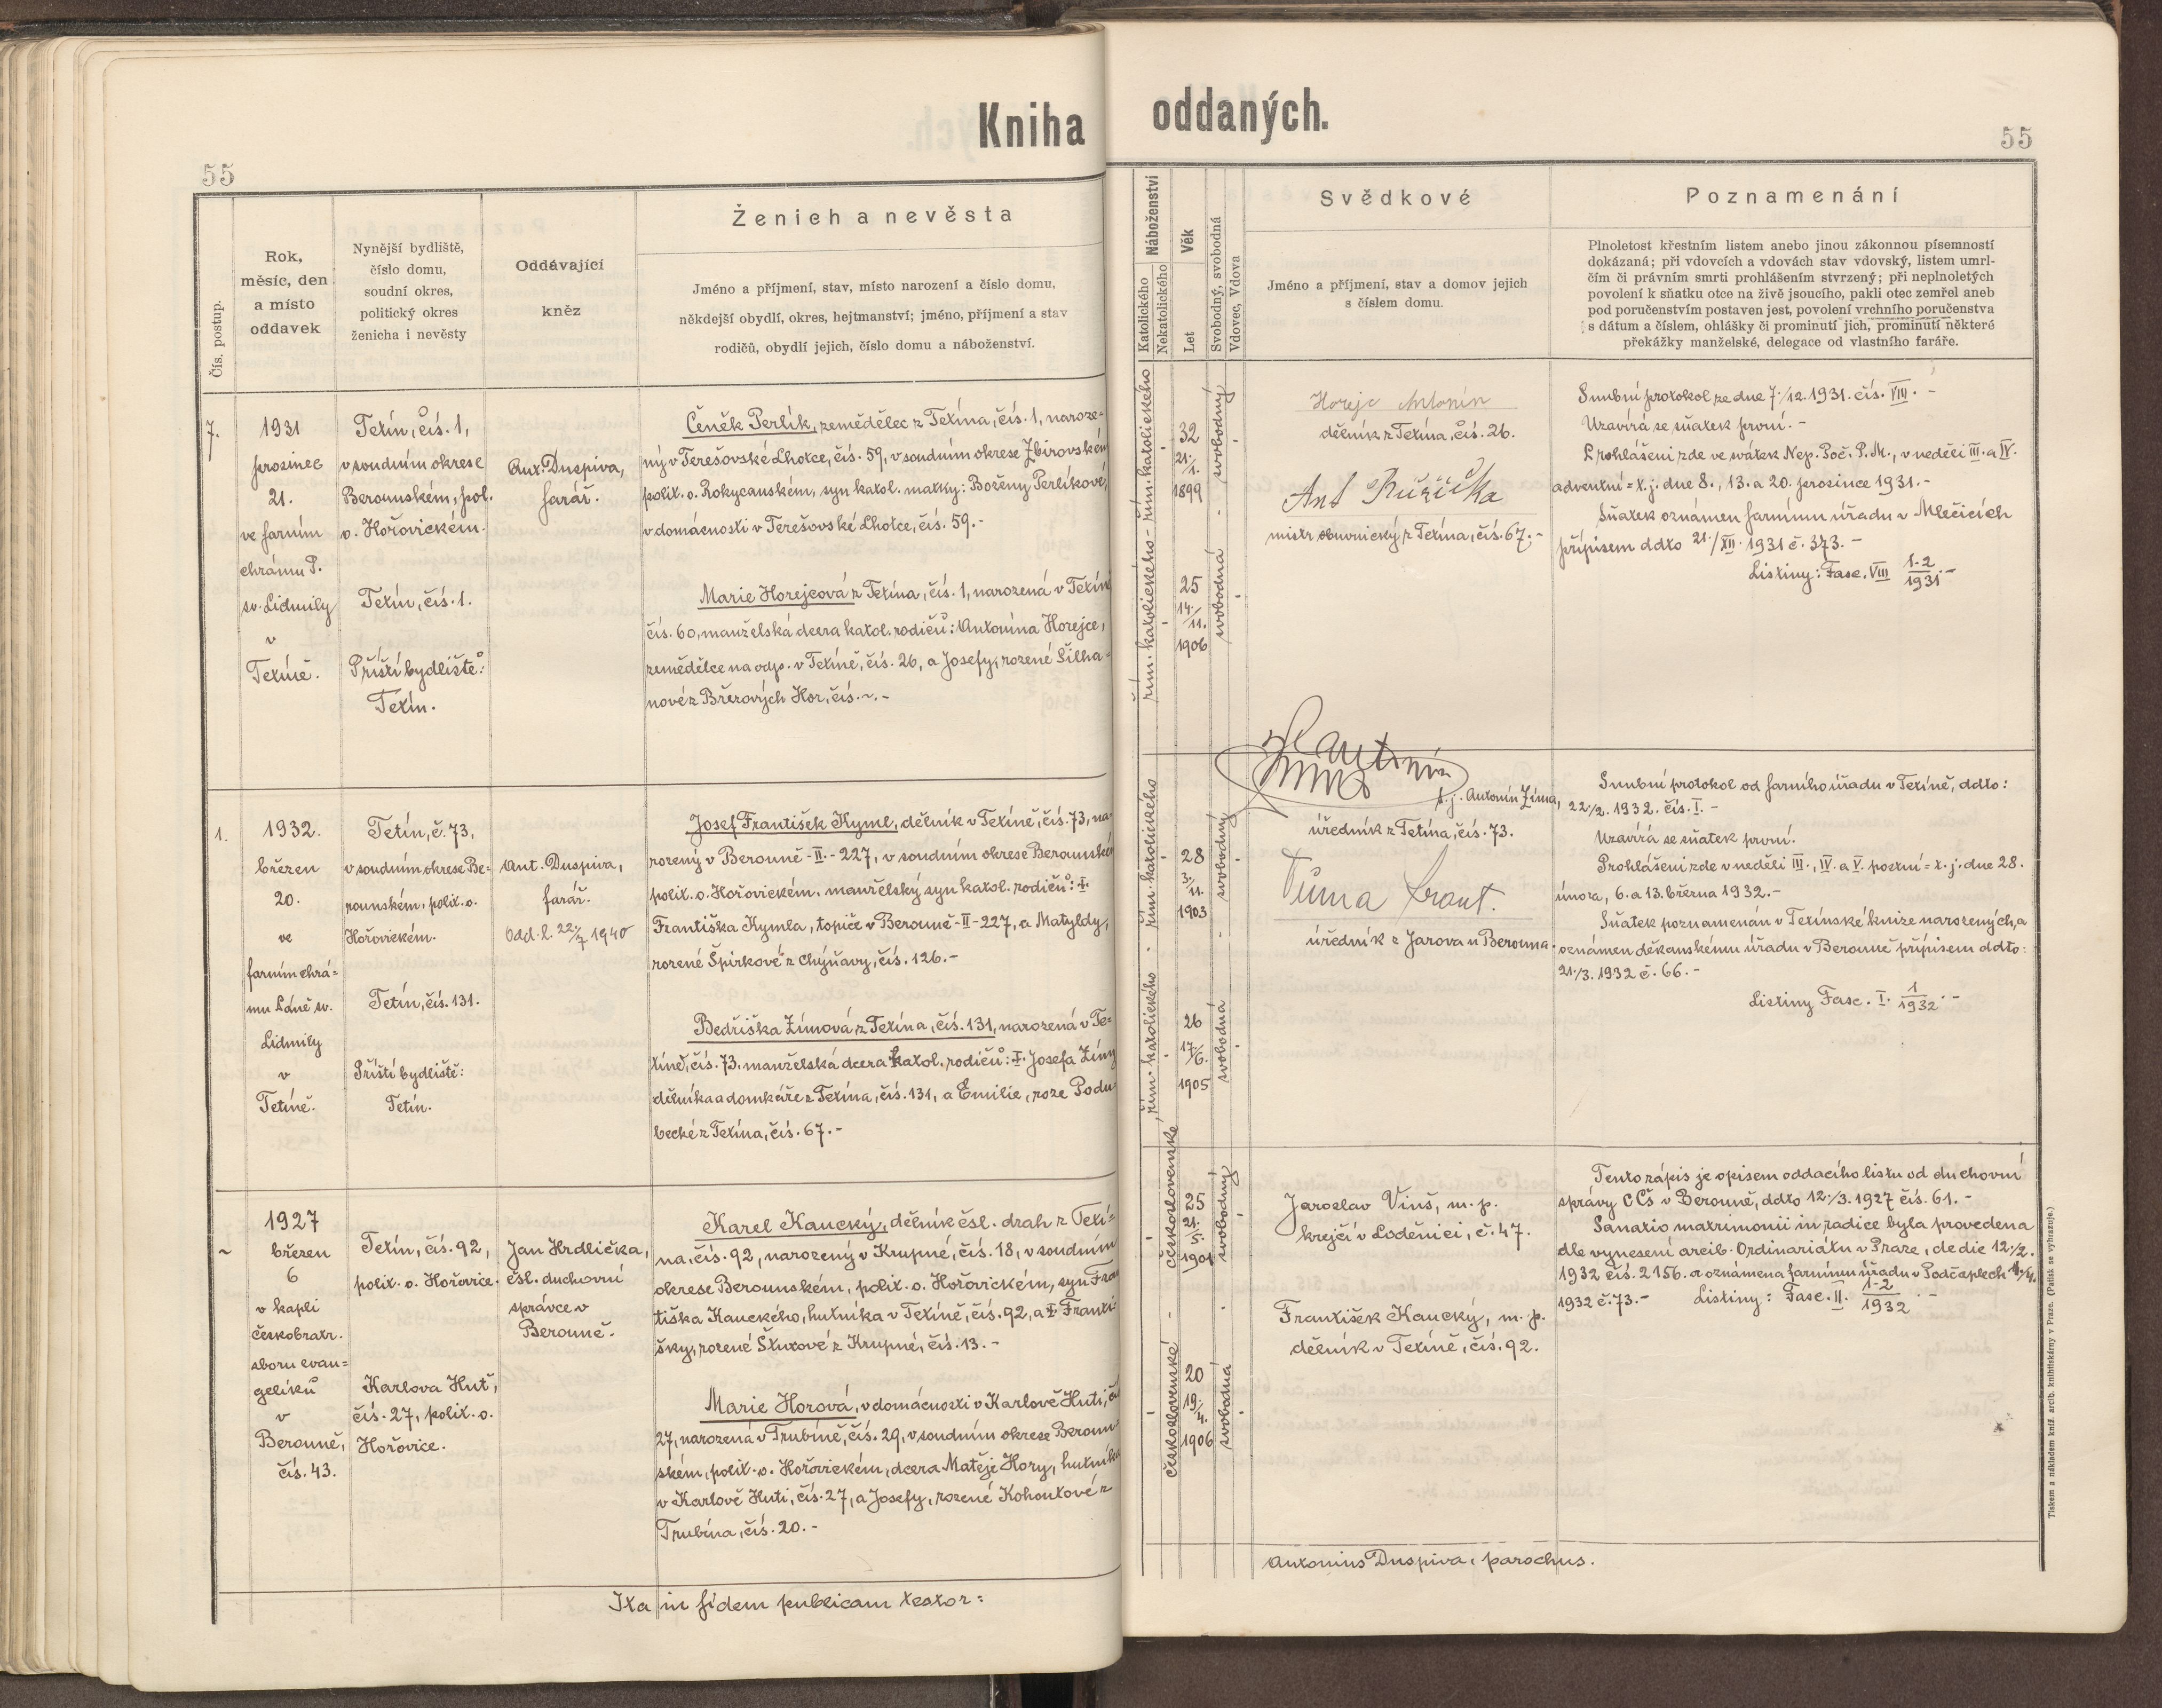 Kniha
oddaných.
55
55
Čís. postup.
Rok,
měsíc, den
a místo
oddavek
Nynější bydliště,
číslo domu,
soudní okres,
politický okres
ženicha i nevěsty
Oddávající
kněz
Ženich a nevěsta
Jméno a příjmení, stav, místo narození a číslo domu,
někdejší obydlí, okres, hejtmanství; jméno, příjmení a stav
rodičů, obydlí jejich, číslo domu a náboženství.
Náboženství
Katolického
Nekatolického
Věk
Let
Svobodný, svobodná
Vdovec, Vdova
Svědkové
Jméno a příjmení, stav a domov jejich
s číslem domu.
Poznamenání
Plnoletost křestním listem anebo jinou zákonnou písemností
dokázaná; při vdovcích a vdovách stav vdovský, listem umrl-
čím či právním smrti prohlášením stvrzený; při neplnoletých
povolení k sňatku otce na živě jsoucího, pakli otec zemřel aneb
pod poručenstvím postaven jest, povolení vrchního poručenstva
s dátum a číslem, ohlášky či prominutí jich, prominutí některé
překážky manželské, delegace od vlastního faráře.
7.
1931
prosinec
21.
ve farním
chrámu P.
sv. Lidmily
v
Tetíně.
Tetín, čís. 1,
v soudním okrese
Berounském, pol.
o. Hořovickém.
Tetín, čís. 1.
Příští bydliště:
Tetín.
Ant. Duspiva,
farář.
Čeněk Perlík, zemědělec z Tetína, čís. 1, naroze=
ný v Terešovské Lhotce, čís. 59, v soudním okrese Zbirovském
polit. o. Rokycanském, syn katol. matky: Boženy Perlíkové,
v domácnosti v Terešovské Lhotce, čís. 59.-
Marie Horejcová z Tetína, čís. 1, narozená v Tetíně
čís. 60, manželská dcera katol. rodičů: Antonína Horejce,
zemědělce na odp. v Tetíně, čís. 26, a Josefy, rozené Šilha-
nové z Březových Hor, čís. ~.-
řím. katolického - řím. katolického
32
21./1.
1899
25
14./11.
1906
svobodný
svobodná
Horejc Antonín
dělník z Tetína, čís. 26.
Ant Růžička
mistr obuvnický z Tetína, čís. 67.-
Snubní protokol ze dne 7./12. 1931. čís. VIII. -
Uzavírá se sňatek první. -
Prohlášeni zde ve svátek Nep. Poč. P. M., v neděli III. a IV.
adventní = t. j. dne 8., 13. a 20. prosince 1931.-
Sňatek oznámen farnímu úřadu v Mlečicích
přípisem ddto 21./XII. 1931 č. 373.-
Listiny: Fasc. VIII 1-2/1931.-
1.
1932.
březen
20.
ve
farním chrá=
mu Páně sv.
Lidmily
v
Tetíně.
Tetín, č. 73,
v soudním okrese Be-
rounském, polit. o.
Hořovickém.
Tetín, čís. 131.
Příští bydliště:
Tetín.
Ant. Duspiva,
farář.
Odd. l. 22/7 1940
Josef František Kyml, dělník v Tetíně, čís. 73, na-
rozený v Berouně-II.-227, v soudním okrese Berounském
polit. o. Hořovickém, manželský syn katol. rodičů: †
Františka Kymla, topiče v Berouně-II-227, a Matyldy,
rozené Špirkové z Chýňavy, čís. 126.-
Bedřiška Zímová z Tetína, čís. 131, narozená v Te=
tíně, čís. 73, manželská dcera katol. rodičů: † Josefa Zímy
dělníka a domkáře z Tetína, čís. 131, a Emilie, roze Podu
becké z Tetína, čís. 67.-
řím. katolického - řím. katolického
28
3./11.
1903
26
17./6.
1905
svobodný
svobodná
t. j. Antonín Zíma,
úředník z Tetína, čís. 73.
Tůma Frant.
úředník z Jarova u Berouna.
Snubní protokol od farního úřadu v Tetíně, ddto:
22./2. 1932. čís. I. -
Uzavírá se sňatek první.
Prohlášeni zde v neděli III., IV. a V. postní = t. j. dne 28.
února, 6. a 13. března 1932.-
Sňatek poznamenán v Tetínské knize narozených, a
oznámen děkanskému úřadu v Berouně přípisem ddto:
21./3. 1932 č. 66.-
Listiny Fasc. I. 1/1932.-
~
1927
březen
6
v kapli
českobratr.
sboru evan=
gelíků
v
Berouně,
čís. 43.
Tetín, čís. 92,
polit. o. Hořovice.
Karlova Huť,
čís. 27, polit. o.
Hořovice.
Jan Hrdlička,
čsl. duchovní
správce v
Berouně.
Karel Kaucký, dělník čsl. drah z Tetí=
na, čís. 92, narozený v Krupné, čís. 18, v soudním
okrese Berounském, polit. o. Hořovickém, syn Fran
tiška Kauckého, hutníka v Tetíně, čís. 92, a † Franti-
šky, rozené Šturové z Krupné, čís. 13.-
Marie Horová, v domácnosti v Karlově Huti, čís
27, narozená v Trubíně, čís. 29, v soudním okrese Beroun-
ském, polit. o. Hořovickém, dcera Matěje Hory, hutníka
v Karlově Huti, čís. 27, a Josefy, rozené Kohoutové z
Trubína, čís. 20.-
československé
československé
25
21./5.
1901
20
19./4.
1906
svobodný
svobodná
Jaroslav Vinš, m. p.
krejčí v Loděnici, č. 47.
František Kaucký, m. p.
dělník v Tetíně, čís. 92.
Tento zápis je opisem oddacího listu od duchovní
správy CČs v Berouně, ddto 12./3. 1927 čís. 61.-
Sanatio matrimonii in radice byla provedena
dle vynesení arcib. Ordinariátu v Praze, de die 12./2.
1932 čís. 2156. a oznámena farnímu úřadu v Podčaplech
1932 č. 73.- Listiny: Fasc. II. 1-2/1932.-
Ita in fidem publicam testor:
Antonius Duspiva, parochus.
Tiskem a nákladem kníž. arcib. knihtiskárny v Praze. (Patisk se vyhrazuje.)